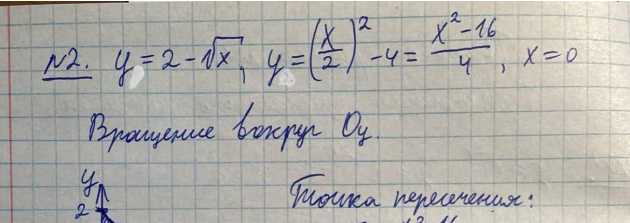 N2. y = 2 - √x, y = (x/2)² - 4 = (x² - 16)/4, x = 0
Вращение вокруг Oy.
y
Точка пересечения:
2